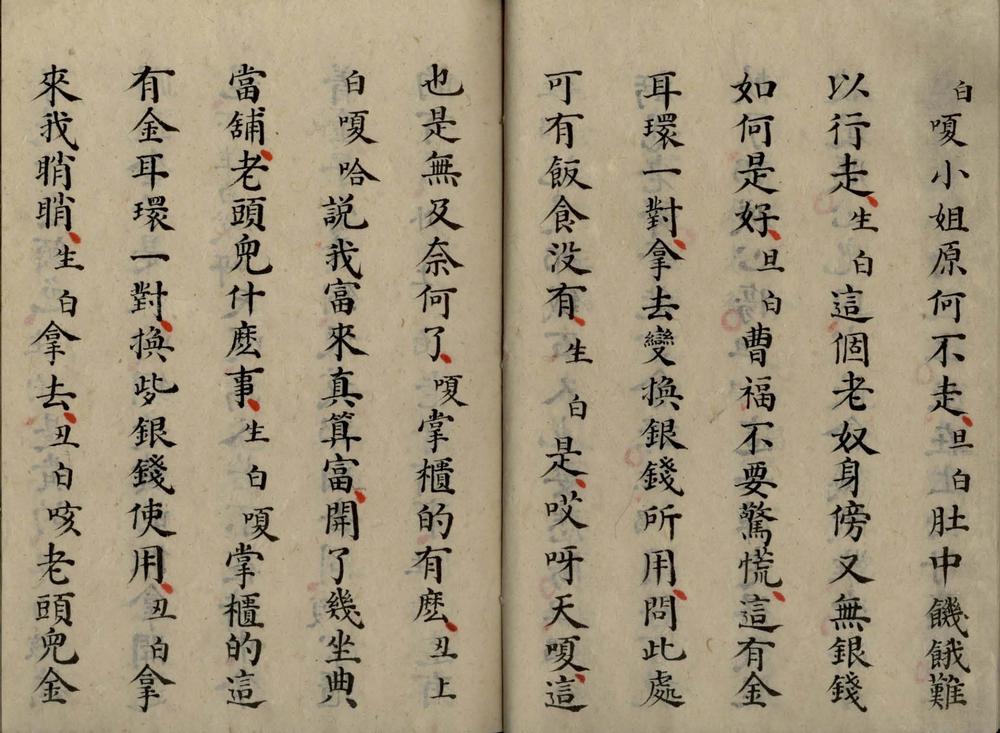 白嗄小姐原何不走旦白肚中饑餓難
以行走生白這個老奴身傍又無銀錢
如何是好旦白曹福不要驚慌這有金
耳環一對拿去變換銀錢所用問此處
可有飯食没有生白是哎呀天嗄這
也是無及奈何了嗄掌櫃的有麽丑上
白嗄哈說我富來真算富開了幾坐典
當舖老頭兒什麽事生白嗄掌櫃的這
有金耳環一對換些銀錢使用丑白拿
來我睄睄生白拿去丑白咳老頭兒金